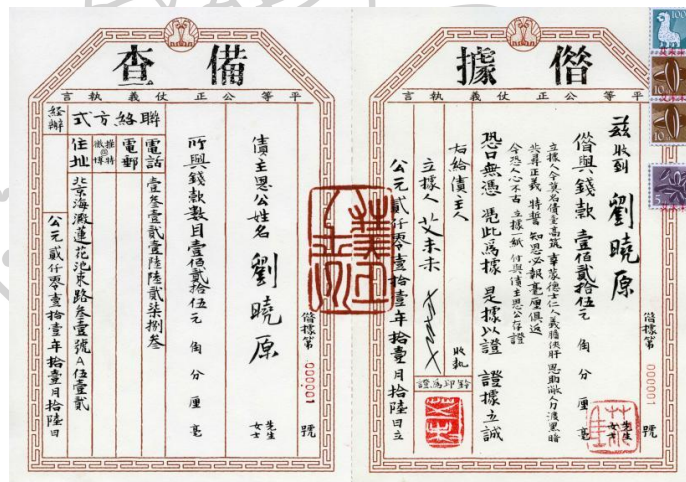 借據
平等公正仗義執言
借據第 000001 號
茲收到 劉曉原 先生 女士
借與錢款 壹佰貳拾伍元 角 分 厘 毫
立據人今莫名債臺高筑 幸蒙德士仁人義膽俠肝 恩助敝人力渡黑暗
共尋正義 特誓知恩必報毫厘俱返
今恐人心不古 立據一紙 付與債主恩公存證
恐口無憑 憑此爲據 是據以證 證據立誠
右給債主人 收執
立據人 艾未未
鈐印爲證
公元貳仟零壹拾壹年拾壹月拾陸日立
100
10
10
5
備查
平等公正仗義執言
借據第 000001 號
債主恩公姓名 劉曉原 先生 女士
所與錢款數目壹佰貳拾伍元 角 分 厘 毫
聯絡方式
電話 壹叁壹貳壹陸陸貳柒捌叁
電郵
推特 微博
住址 北京海澱蓮花池東路叁壹號A伍壹貳
經辦
公元貳仟零壹拾壹年拾壹月拾陸日